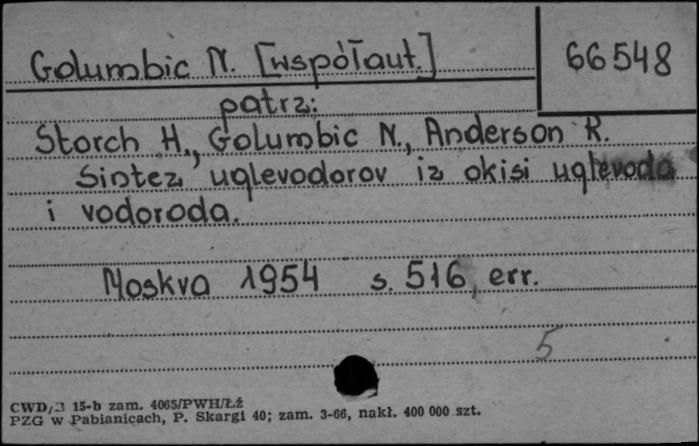 Golumbic N. [współaut.]
66548
patrz:
Storch H., Golumbic N., Anderson R.
Sintez uglevodorov iz okisi uglevoda
i vodoroda.
Moskva 1954 s. 516, err.
5
CWD/3 15-b zam. 4065/PWH/Łź
PZG w Pabianicach, P. Skargi 40; zam. 3-66, nakł. 400 000 szt.